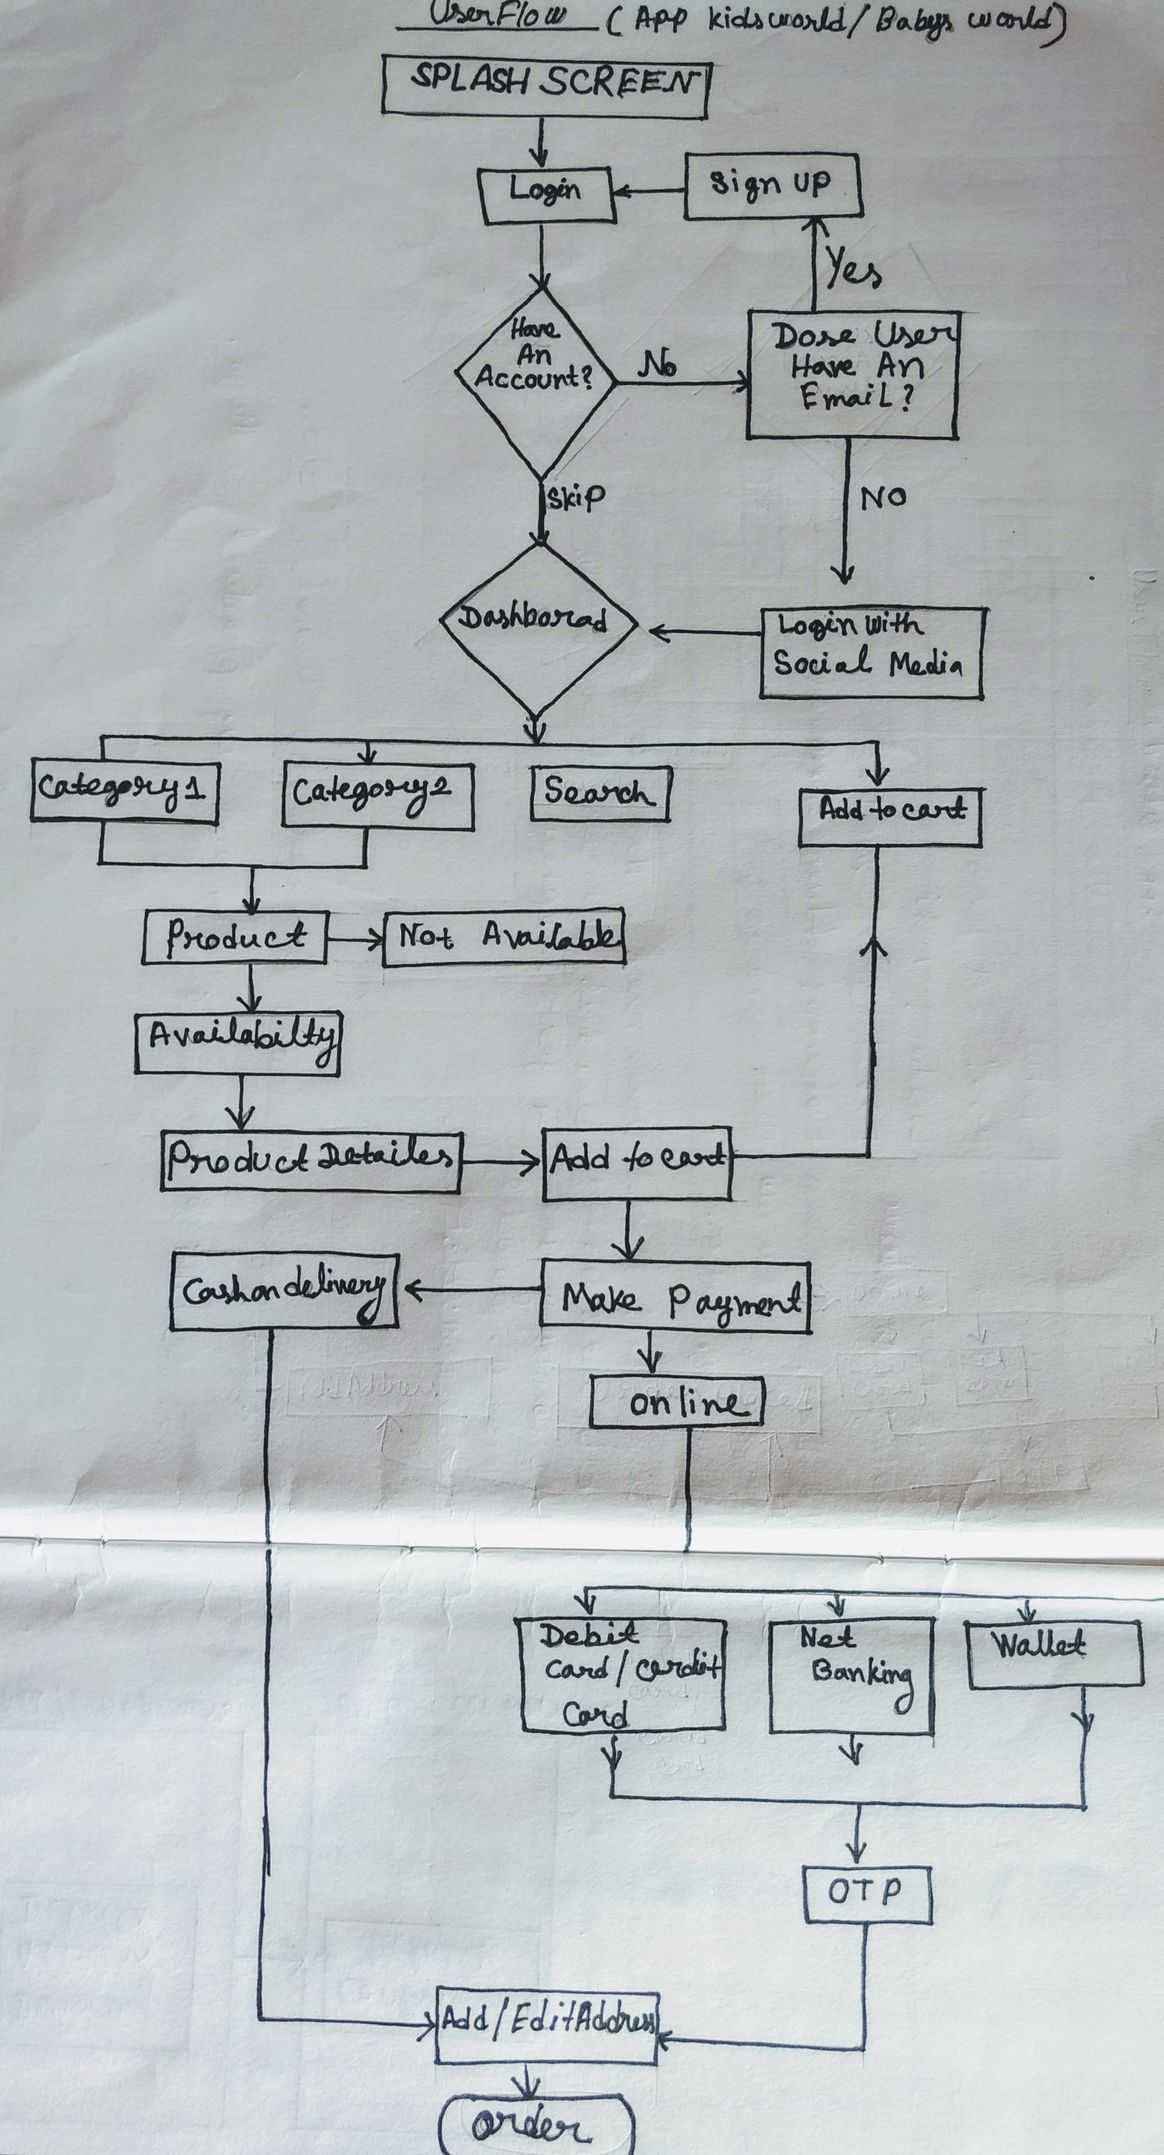 UserFlow (App kidsworld/Babys world)
SPLASH SCREEN
Login
Sign up
Yes
Have
An
Account?
No
Dose User
Have An
Email?
Skip
NO
Dashborad
Login with
Social Media
Category1
Category2
Search
Add to cart
Product
Not Available
Availabilty
Product Detailes
Add to cart
Cash on delivery
Make Payment
online
Debit
card/cerdit
Card
Net
Banking
Wallet
OTP
Add/Edit Address
order